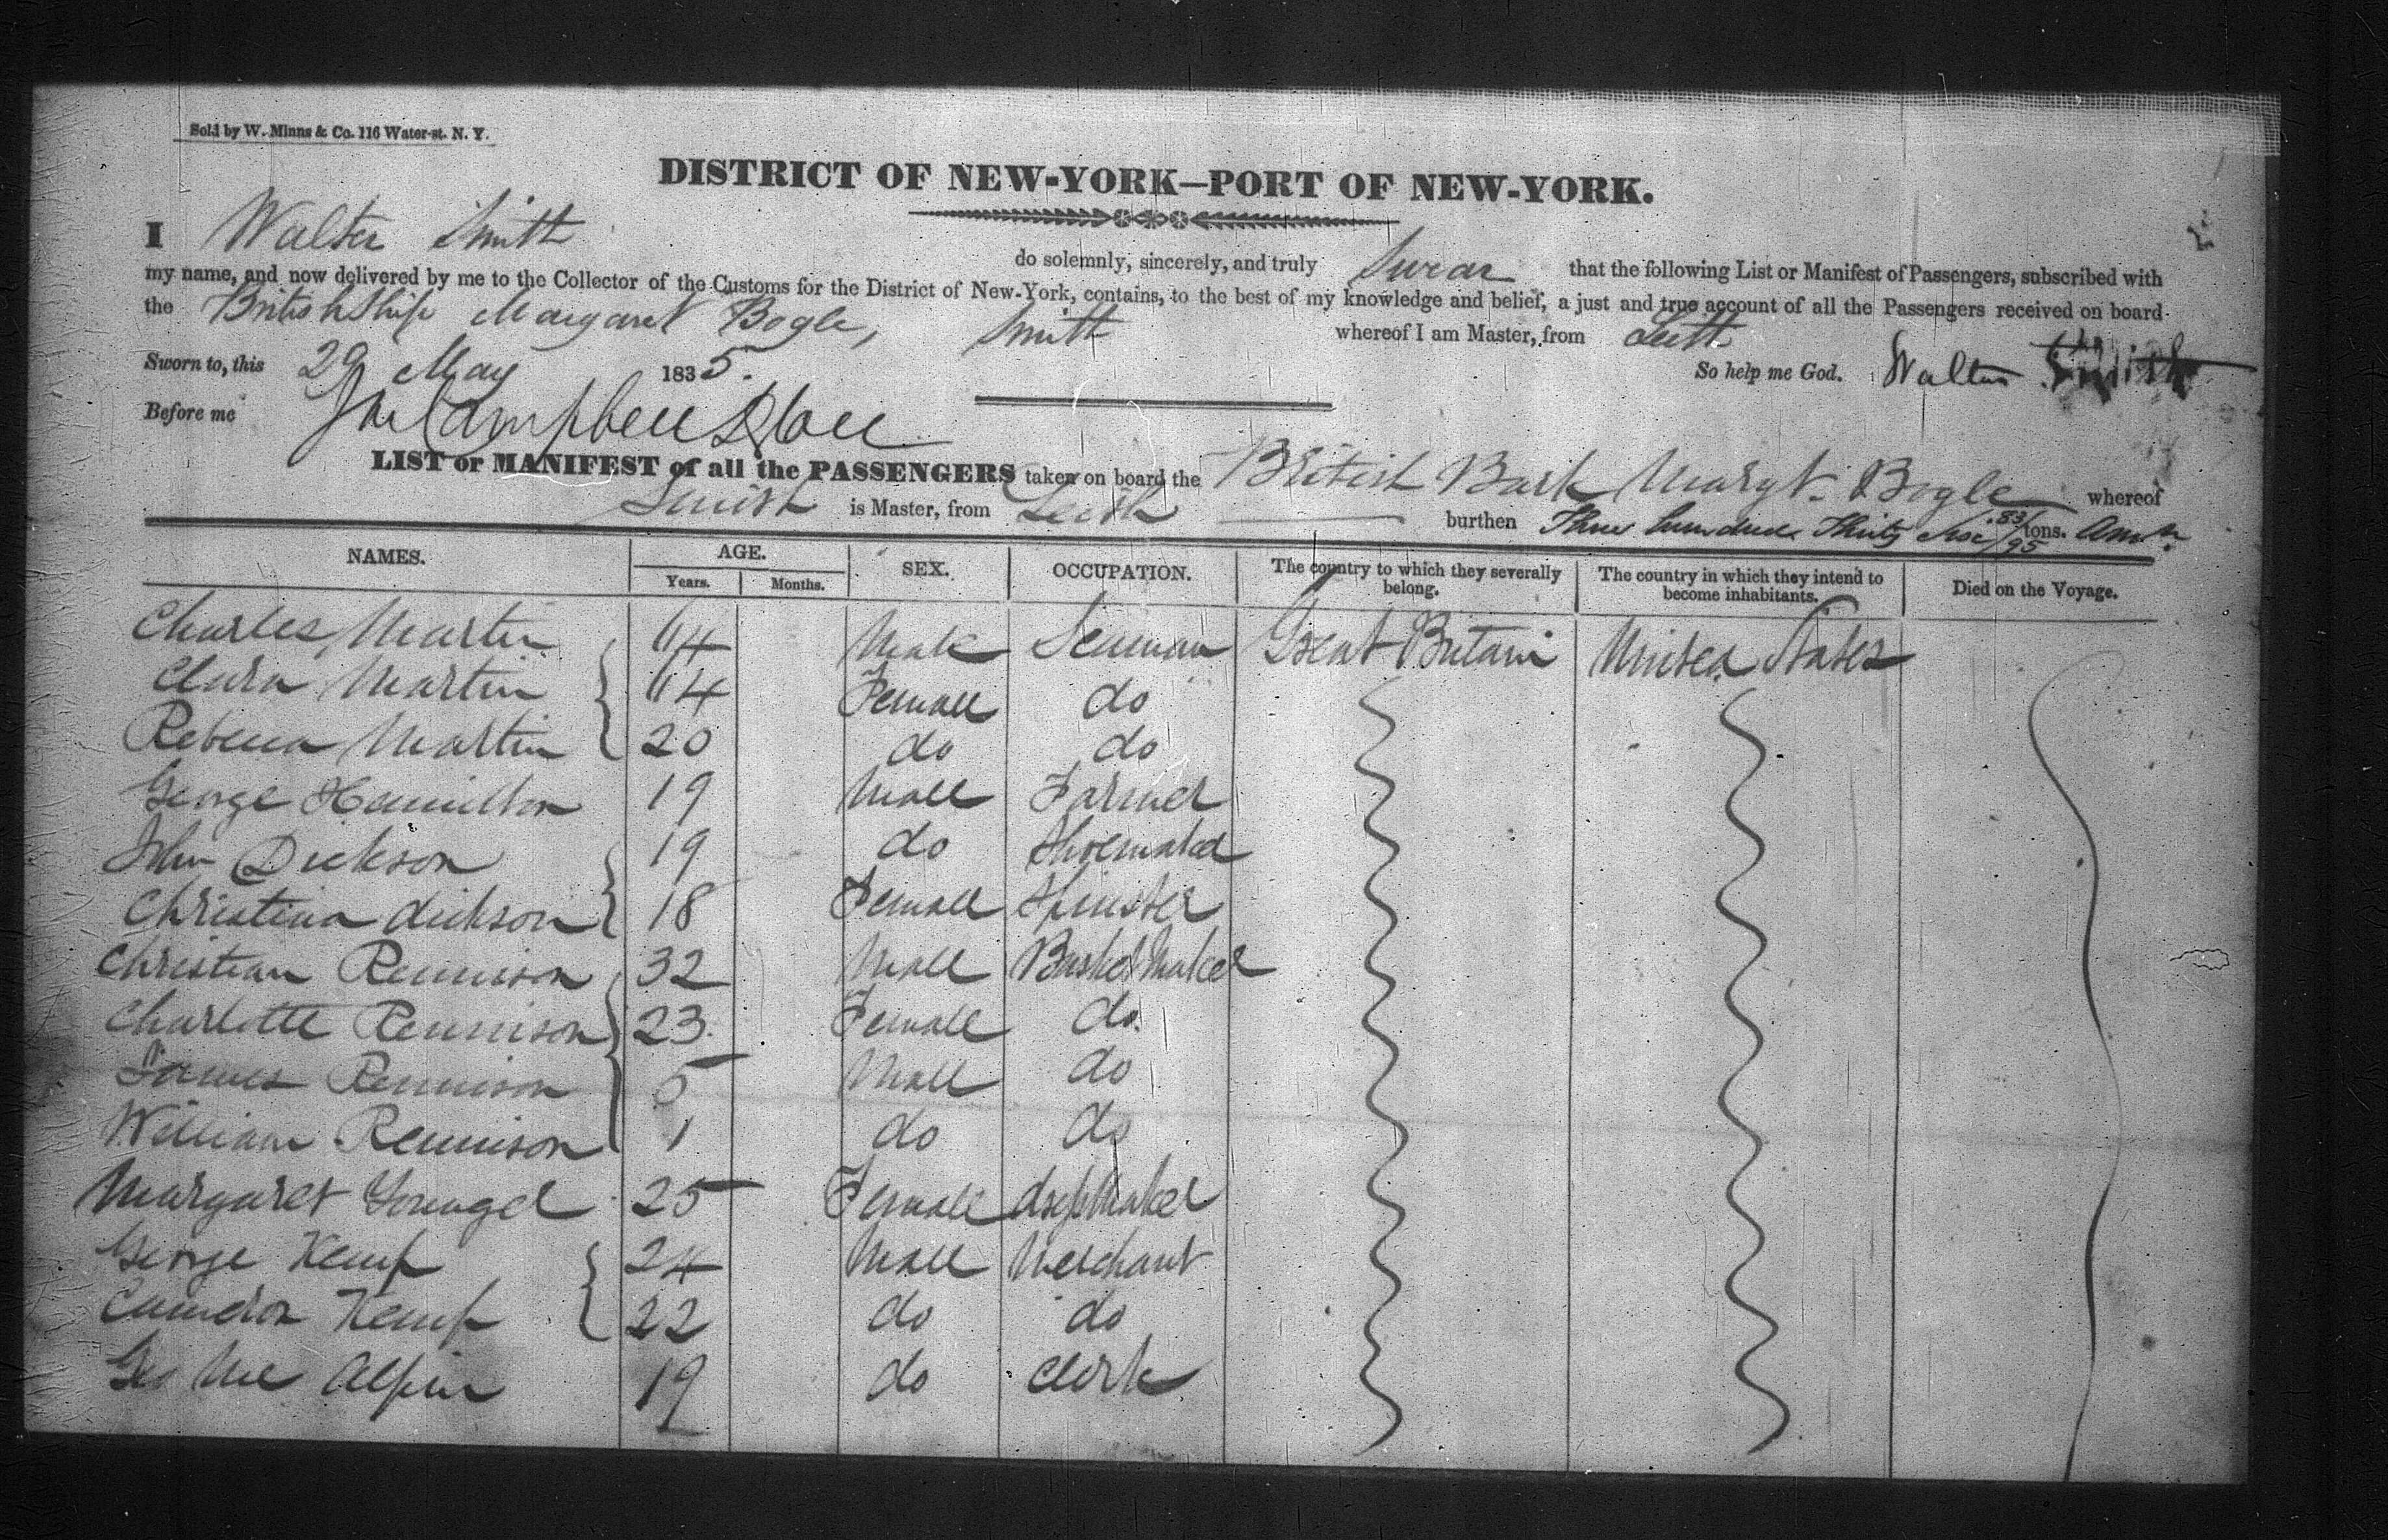 Sold by W. Minns & Co. 116 Water-st. N. Y.
DISTRICT OF NEW-YORK—PORT OF NEW-YORK.
I Walter Smith do solemnly, sincerely, and truly Swear that the following List or Manifest of Passengers, subscribed with
my name, and now delivered by me to the Collector of the Customs for the District of New-York, contains, to the best of my knowledge and belief, a just and true account of all the Passengers received on board
the British Ship Margaret Bogle, Smith whereof I am Master, from Leith
Sworn to, this 29 May 1835. So help me God. Walter Smith
Before me
LIST or MANIFEST of all the PASSENGERS taken on board the British Bark Margt. Bogle whereof
Smith is Master, from Leith burthen Three hundred Thirty Six 83/95 tons.
NAMES. AGE. SEX. OCCUPATION. The country to which they severally belong. The country in which they intend to become inhabitants. Died on the Voyage.
Years. Months.
Charles Martin 44 Male Seaman Great Britain United States
Clara Martin 44 Female do
Rebecca Martin 20 do do
George Hamilton 19 Male Farmer
John Dickson 19 do Shoemaker
Christina dickson 18 Female Spinster
Christian Rennison 32 Male Basket Maker
Charlotte Rennison 23 Female do.
James Rennison 5 Male do
William Rennison 1 do do
Margaret Younger 25 Female Maker
George Kemp 24 Male Merchant
Cameron Kemp 22 do do
Geo Mc Alpin 19 do Clerk